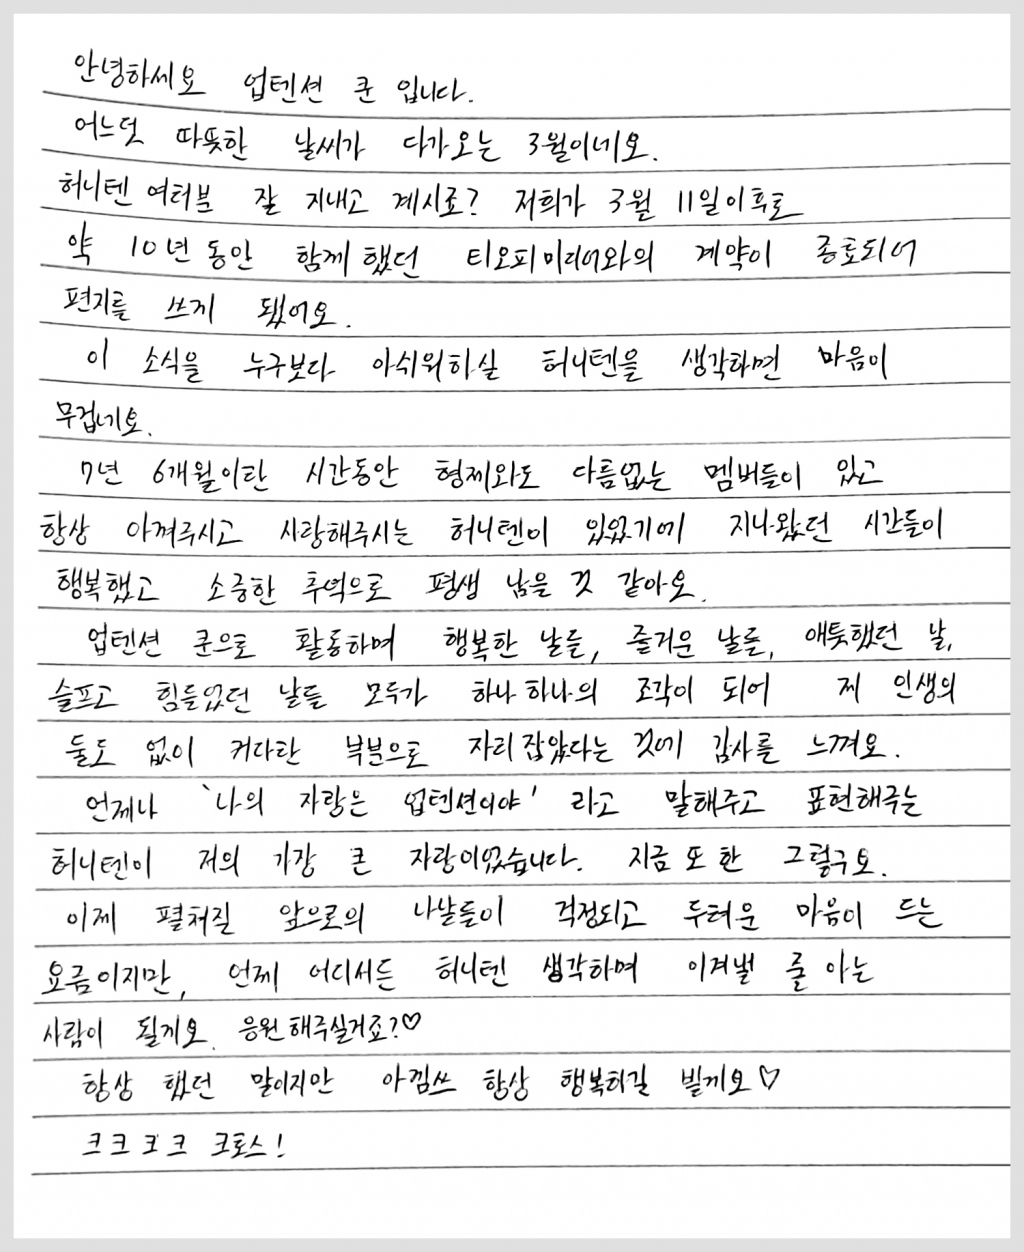 안녕하세요 업텐션 쿤 입니다.
어느덧 따뜻한 날씨가 다가오는 3월이네요.
허니텐 여러분 잘 지내고 계시죠? 저희가 3월 11일이후로
약 10년 동안 함께했던 티오피미디어와의 계약이 종료되어
편지를 쓰게 됐어요.
이 소식을 누구보다 아쉬워하실 허니텐을 생각하면 마음이
무겁네요.
7년 6개월이란 시간동안 형제와도 다름없는 멤버들이 있고
항상 아껴주시고 사랑해주시는 허니텐이 있었기에 지나왔던 시간들이
행복했고 소중한 추억으로 평생 남을 것 같아요.
업텐션 쿤으로 활동하며 행복한 날들, 즐거운 날들, 애틋했던 날,
슬프고 힘들었던 날들 모두가 하나하나의 조각이 되어 제 인생의
둘도 없이 커다란 부분으로 자리잡았다는 것에 감사를 느껴요.
언제나 '나의 자랑은 업텐션이야' 라고 말해주고 표현해주는
허니텐이 저의 가장 큰 자랑이었습니다. 지금 또 한 그렇구요.
이제 펼쳐질 앞으로의 나날들이 걱정되고 두려운 마음이 드는
요즘이지만, 언제 어디서든 허니텐 생각하며 이겨낼 줄 아는
사람이 될게요. 응원해주실거죠?♡
항상 했던 말이지만 아낌쓰 항상 행복하길 빌께요♡
크크크크 크로스!